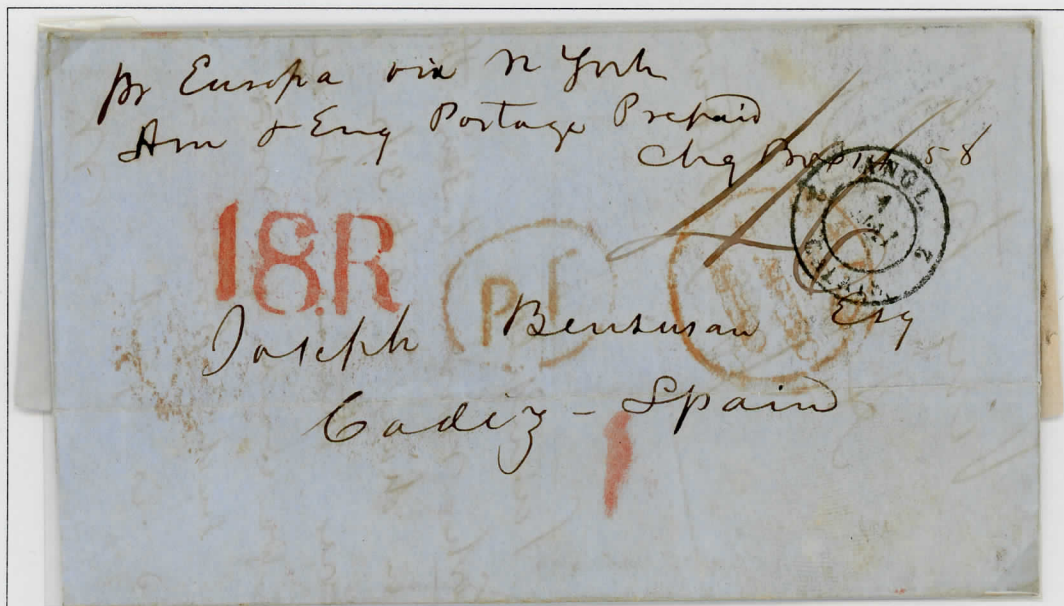 pr Europa via N York
Am & Eng Postage Prepaid
Chg Box 58
18.R
P.F.
ANGL.
2
Joseph Bensusan Esq
Cadiz - Spain